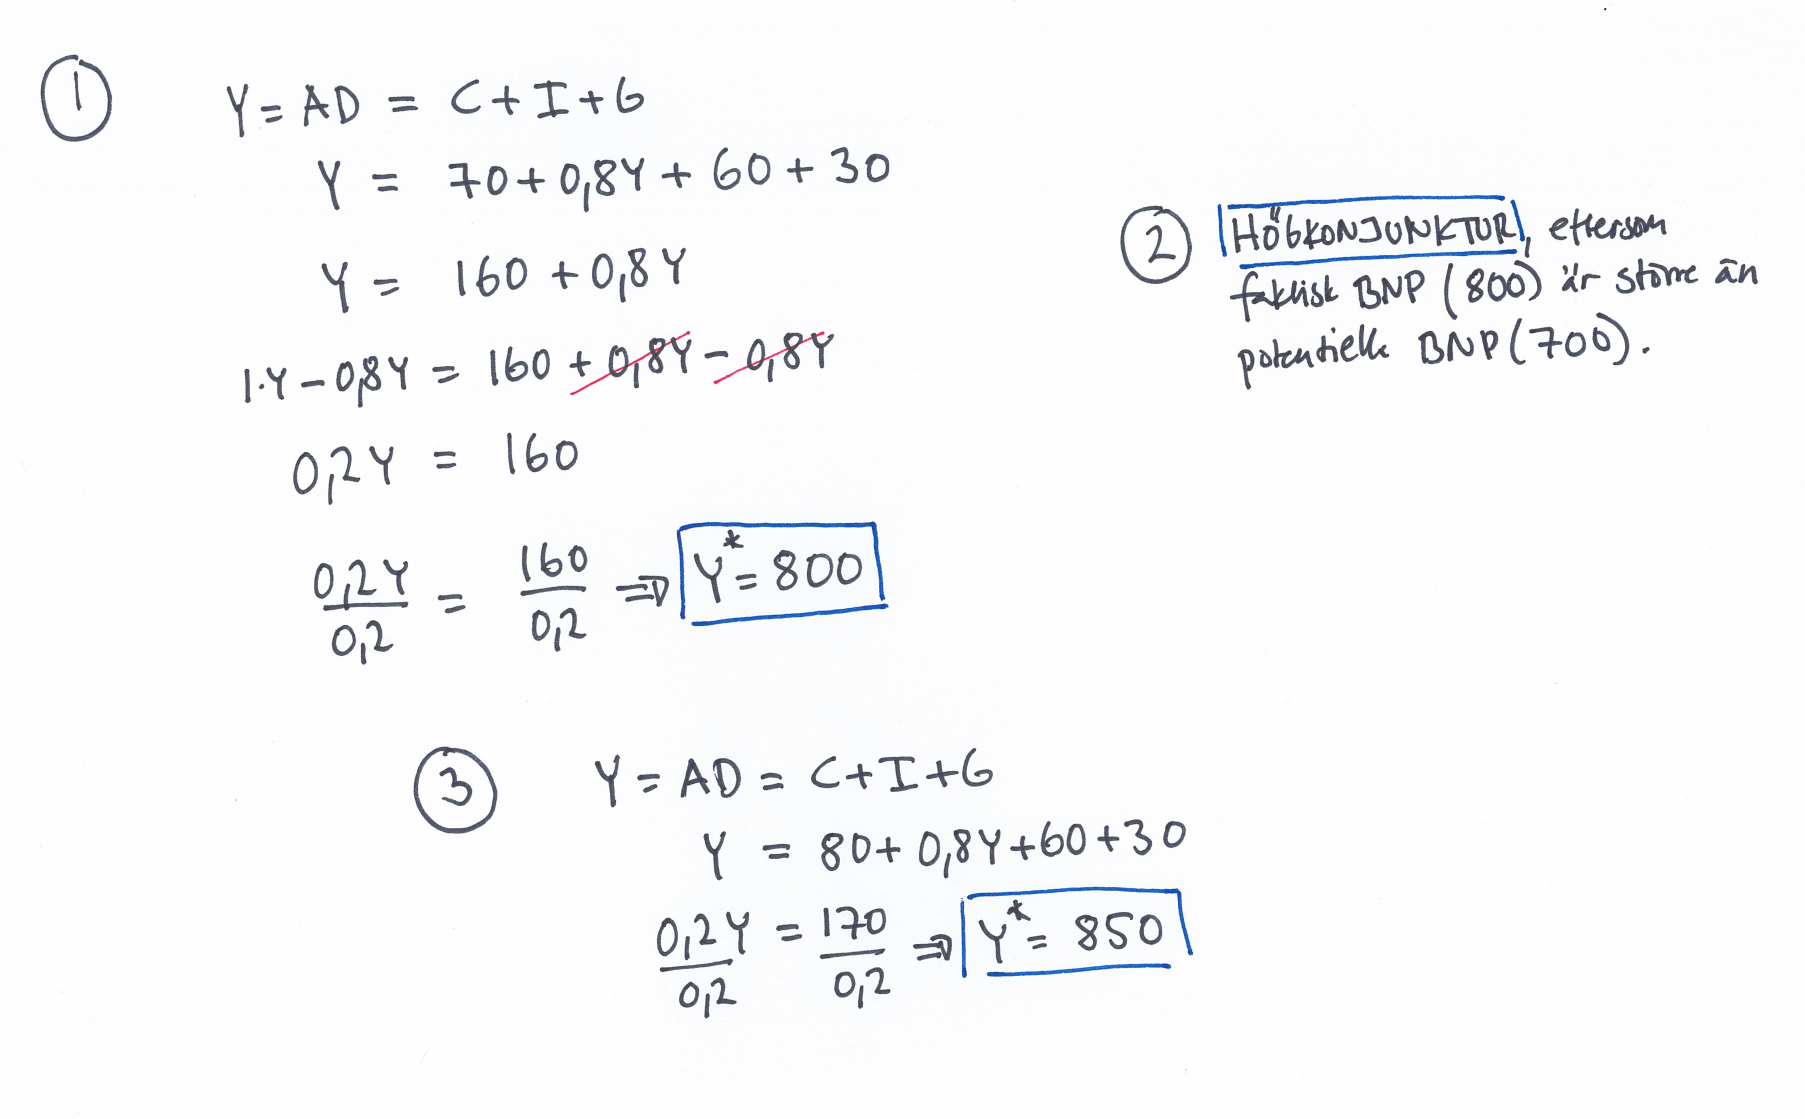 1
Y = AD = C + I + G
Y = 70 + 0,8Y + 60 + 30
Y = 160 + 0,8Y
1·Y - 0,8Y = 160 + 0,8Y - 0,8Y
0,2Y = 160
0,2Y/0,2 = 160/0,2 ⇒ Y* = 800
2 HÖGKONJUNKTUR, eftersom
faktisk BNP (800) är större än
potentiella BNP (700).
3
Y = AD = C + I + G
Y = 80 + 0,8Y + 60 + 30
0,2Y/0,2 = 170/0,2 ⇒ Y* = 850